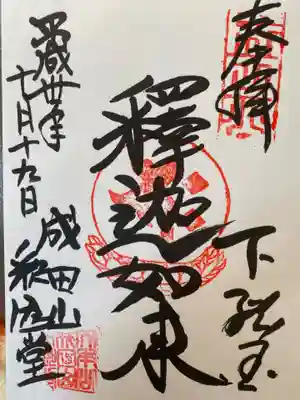 奉拝
下総国
釋迦如来
成田山
釈迦堂
平成卅年
月十九日